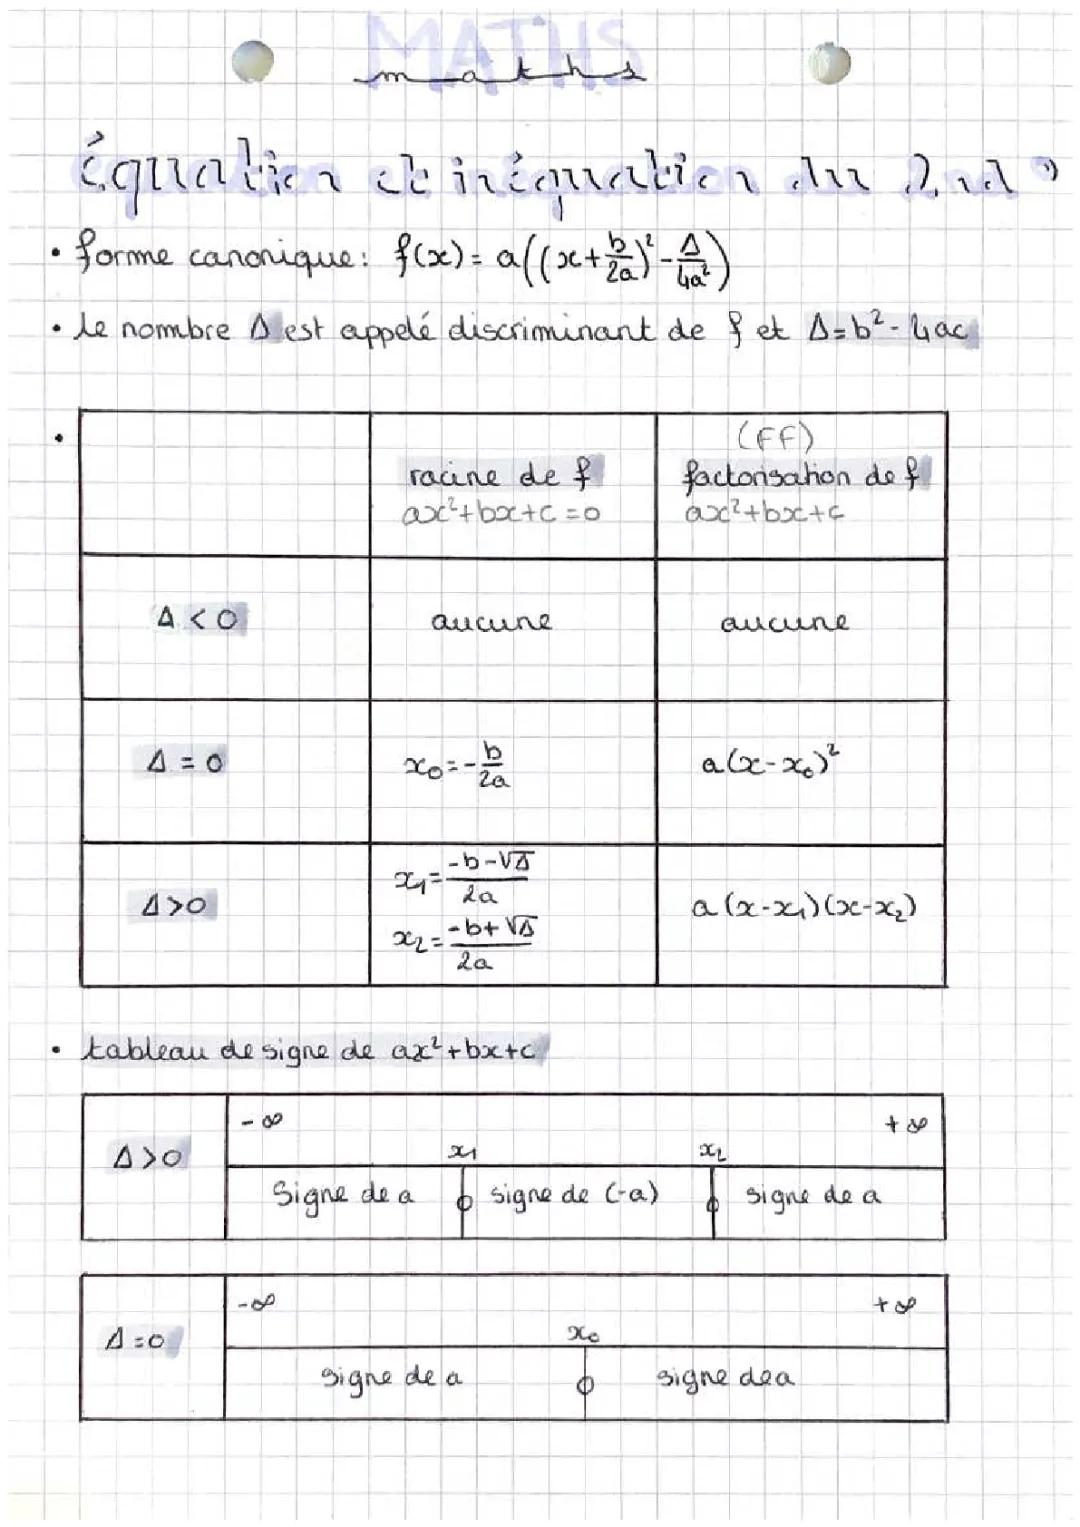 MATHS
maths
équation et inéquation du 2nd °
• forme canonique: f(x) = a((x+b/2a)² - Δ/4a²)
• le nombre Δ est appelé discriminant de f et Δ=b²-4ac
•
(FF)
racine de f factorisation de f
ax²+bx+c=0 ax²+bx+c
Δ<0 aucune aucune
Δ=0 x₀=-b/2a a(x-x₀)²
x₁=(-b-√Δ)/2a
Δ>0 a(x-x₁)(x-x₂)
x₂=(-b+√Δ)/2a
• tableau de signe de ax²+bx+c
-∞ +∞
Δ>0 x₁ x₂
Signe de a signe de (-a) signe de a
-∞ +∞
Δ=0 x₀
signe de a signe de a